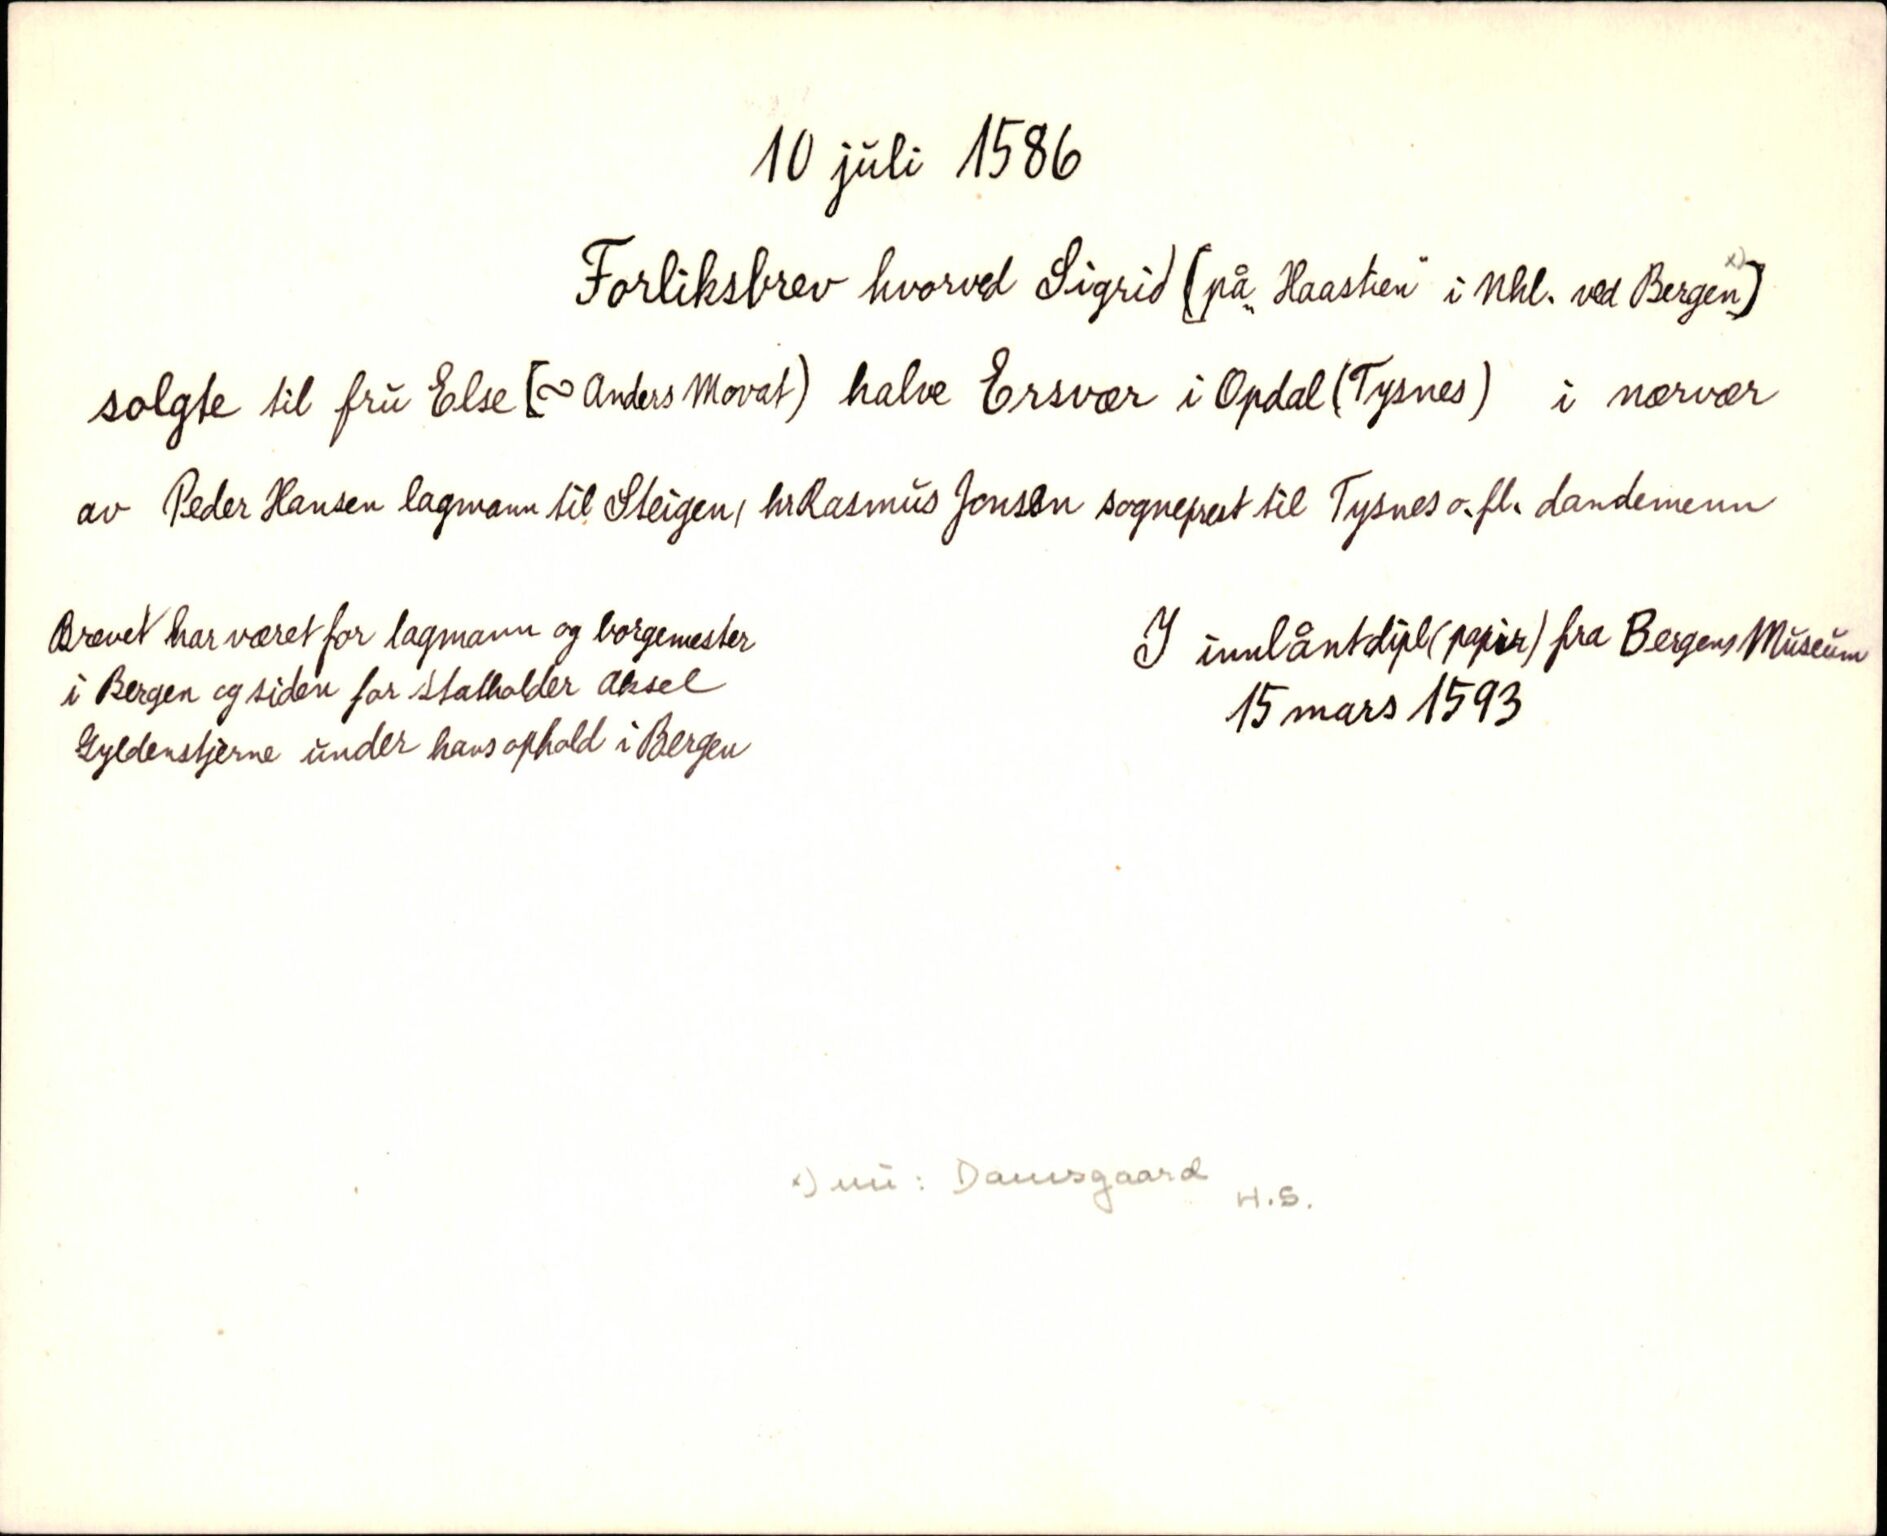 10 juli 1586
Forliksbrev hvorved Sigrid [på „Haastien" i Nhl. ved Bergen x)]
solgte til fru Else [∾ Anders Movat) halve Ersvær i Opdal (Tysnes) i nærvær
av Peder Hansen lagmann til Steigen, hr Rasmus Jonsen sogneprest til Tysnes o. fl. dandemenn
Brevet har været for lagmann og borgemester
i Bergen og siden for statholder Aksel
Gyldenstjerne under hans ophold i Bergen
I innlånt dipl (papir) fra Bergens Museum
15 mars 1593
x) nu: Damsgaard
H.S.